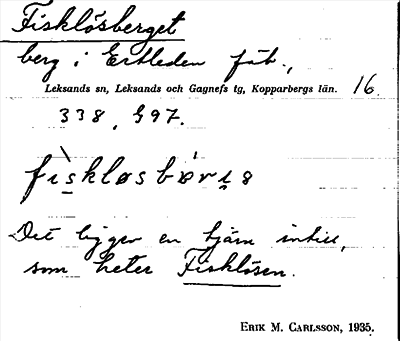 Fisklösberget
berg i Ertleden fäb.,
Leksands sn, Leksands och Gagnefs tg, Kopparbergs län. 16.
338, 597.
Det ligger en tjärn intill,
som heter Fisklösen.
ERIK M. CARLSSON, 1935.